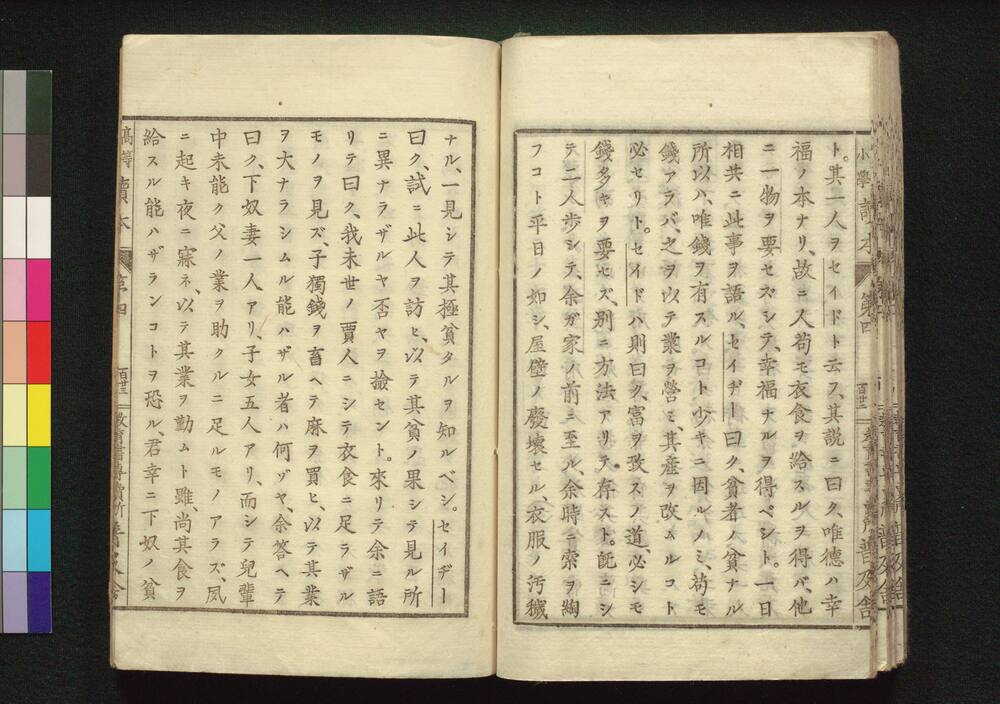 小學讀本 第四 百廿二 普及舍
ト。其一人ヲセイドト云フ、其説ニ曰ク、唯德ハ幸
福ノ本ナリ、故ニ人苟モ衣食ヲ給スルヲ得バ、他
ニ一物ヲ要セズシテ、幸福ナルヲ得ベシト。一日
相共ニ此事ヲ語ル、セイヂー曰ク、貧者ノ貧ナル
所以ハ、唯錢ヲ有スルコト少キニ因ルノミ、苟モ
錢アラバ、之ヲ以テ業ヲ營ミ、其産ヲ改ムルコト
必セリト。セイドハ則曰ク、富ヲ致スノ道、必シモ
錢多キヲ要セズ、別ニ方法アリテ存スト。既ニシ
テ二人歩シテ、余ガ家ノ前ニ至ル、余時ニ索ヲ綯
フコト平日ノ如シ、屋壁ノ廢壞セル、衣服ノ汚穢
ナル、一見シテ其極貧タルヲ知ルベシ。セイヂー
曰ク、試ニ此人ヲ訪ヒ、以テ其貧ノ果シテ見ル所
ニ異ナラザルヤ否ヤヲ撿セント。來リテ余ニ語
リテ曰ク、我未世ノ賈人ニシテ衣食ニ足ラザル
モノヲ見ズ、子獨錢ヲ畜ヘテ麻ヲ買ヒ、以テ其業
ヲ大ナラシムル能ハザル者ハ何ゾヤ、余答ヘテ
曰ク、下奴妻一人アリ、子女五人アリ、而シテ兒輩
中未能ク父ノ業ヲ助クルニ足ルモノアラズ、夙
ニ起キ夜ニ寐ネ、以テ其業ヲ勤ムト雖、尚其食ヲ
給スル能ハザランコトヲ恐ル、君幸ニ下奴ノ貧
高等讀本 第四 百廿三 教育書專賣所普及舍